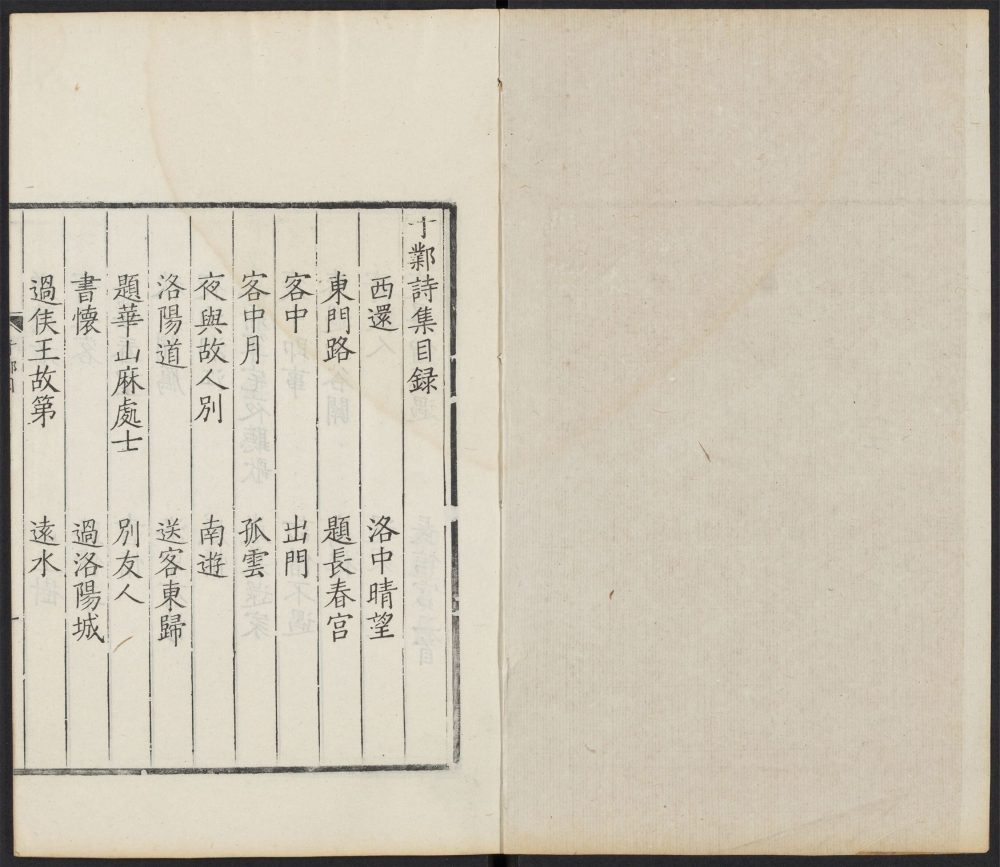 于鄴詩集目録
西還 洛中晴望
東門路 題長春宮
客中 出門
客中月 孤雲
夜與故人別 南遊
洛陽道 送客東歸
題華山麻處士 別友人
書懷 過洛陽城
過侯王故第 遠水